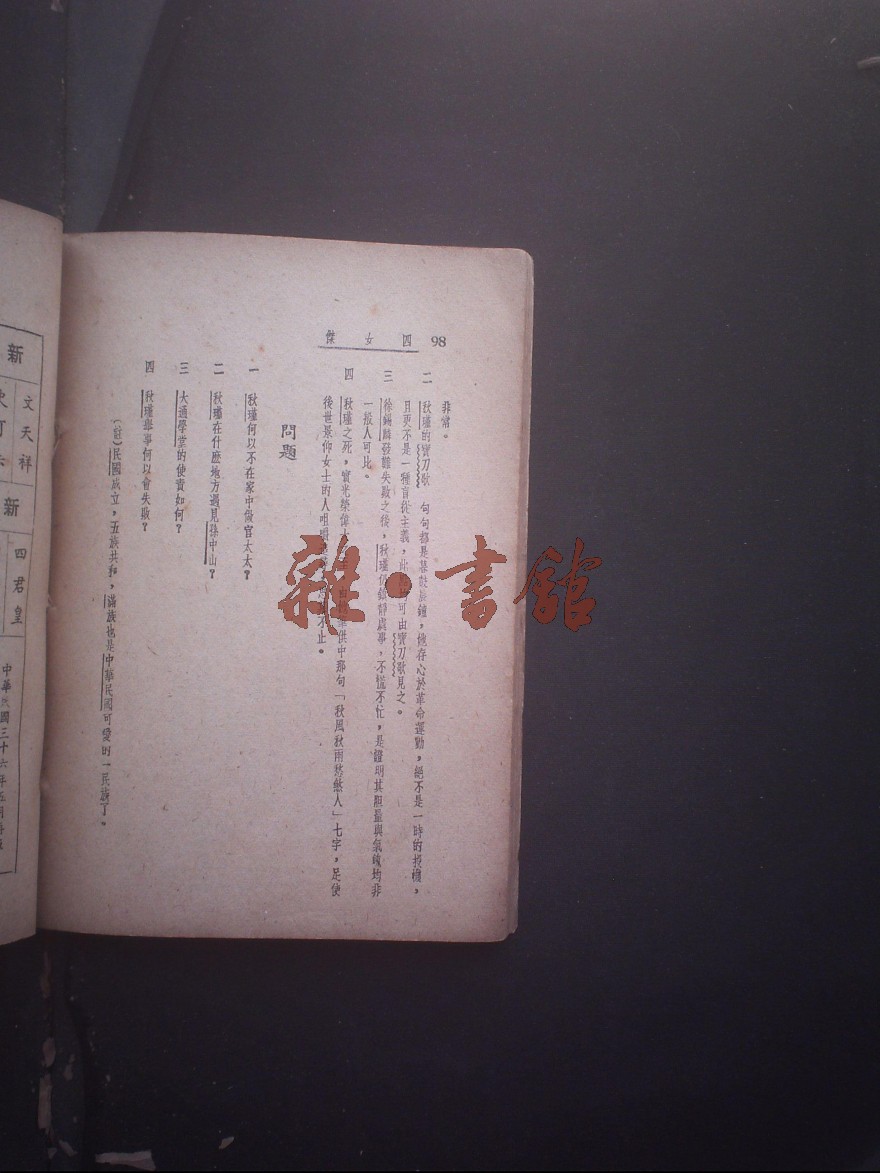 98
四女傑
非常。
二 秋瑾的寶刀歌 句句都是暮鼓晨鐘,他存心於革命運動,絕不是一時的投機,
且更不是一種盲從主義,此 可由寶刀歌見之。
三 徐錫麟發難失敗之後,秋瑾 鎮靜處事,不慌不忙,是證明其胆量與氣魄均非
一般人可比。
四 秋瑾之死,實光榮偉大 供中那句「秋風秋雨愁煞人」七字,足使
後世景仰女士的人咀嚼 不止。
問題
一 秋瑾何以不在家中做官太太?
二 秋瑾在什麽地方遇見孫中山?
三 大通學堂的使責如何?
四 秋瑾舉事何以會失敗?
(註)民國成立,五族共和,滿族也是中華民國可愛的一民族了。
新
文天祥
新
四君皇
中華民國三十六年五月
雜·書館